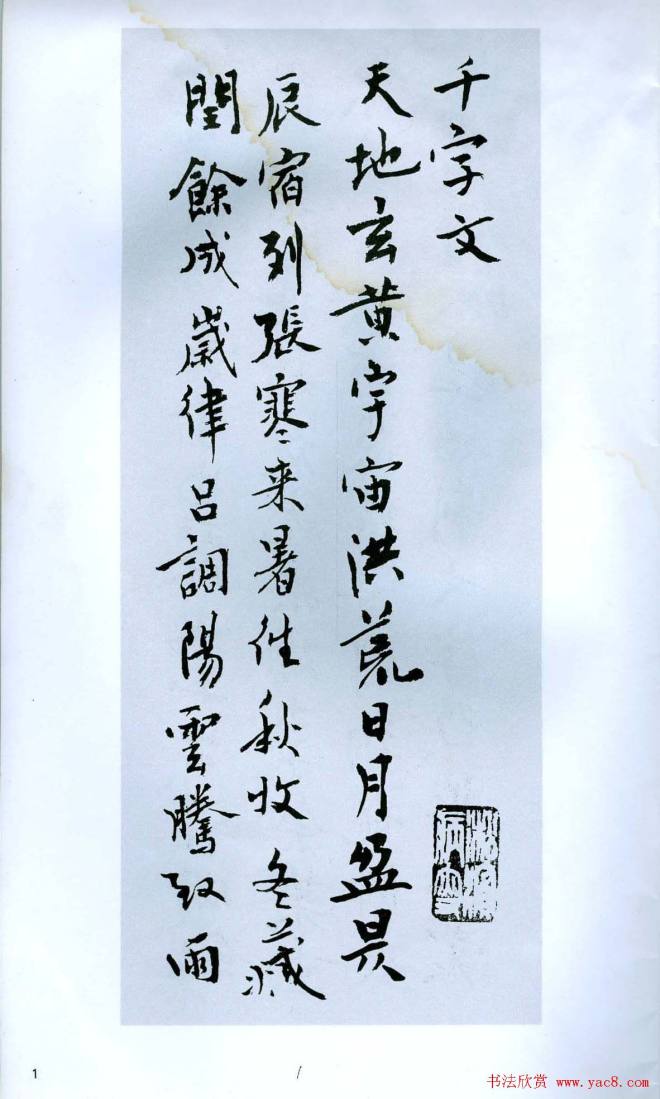 千字文
天地玄黄宇宙洪荒日月盈昃
辰宿列張寒来暑往秋收冬藏
閏餘成歲律呂調陽雲騰致雨
1
/
书法欣赏 www.yac8.com